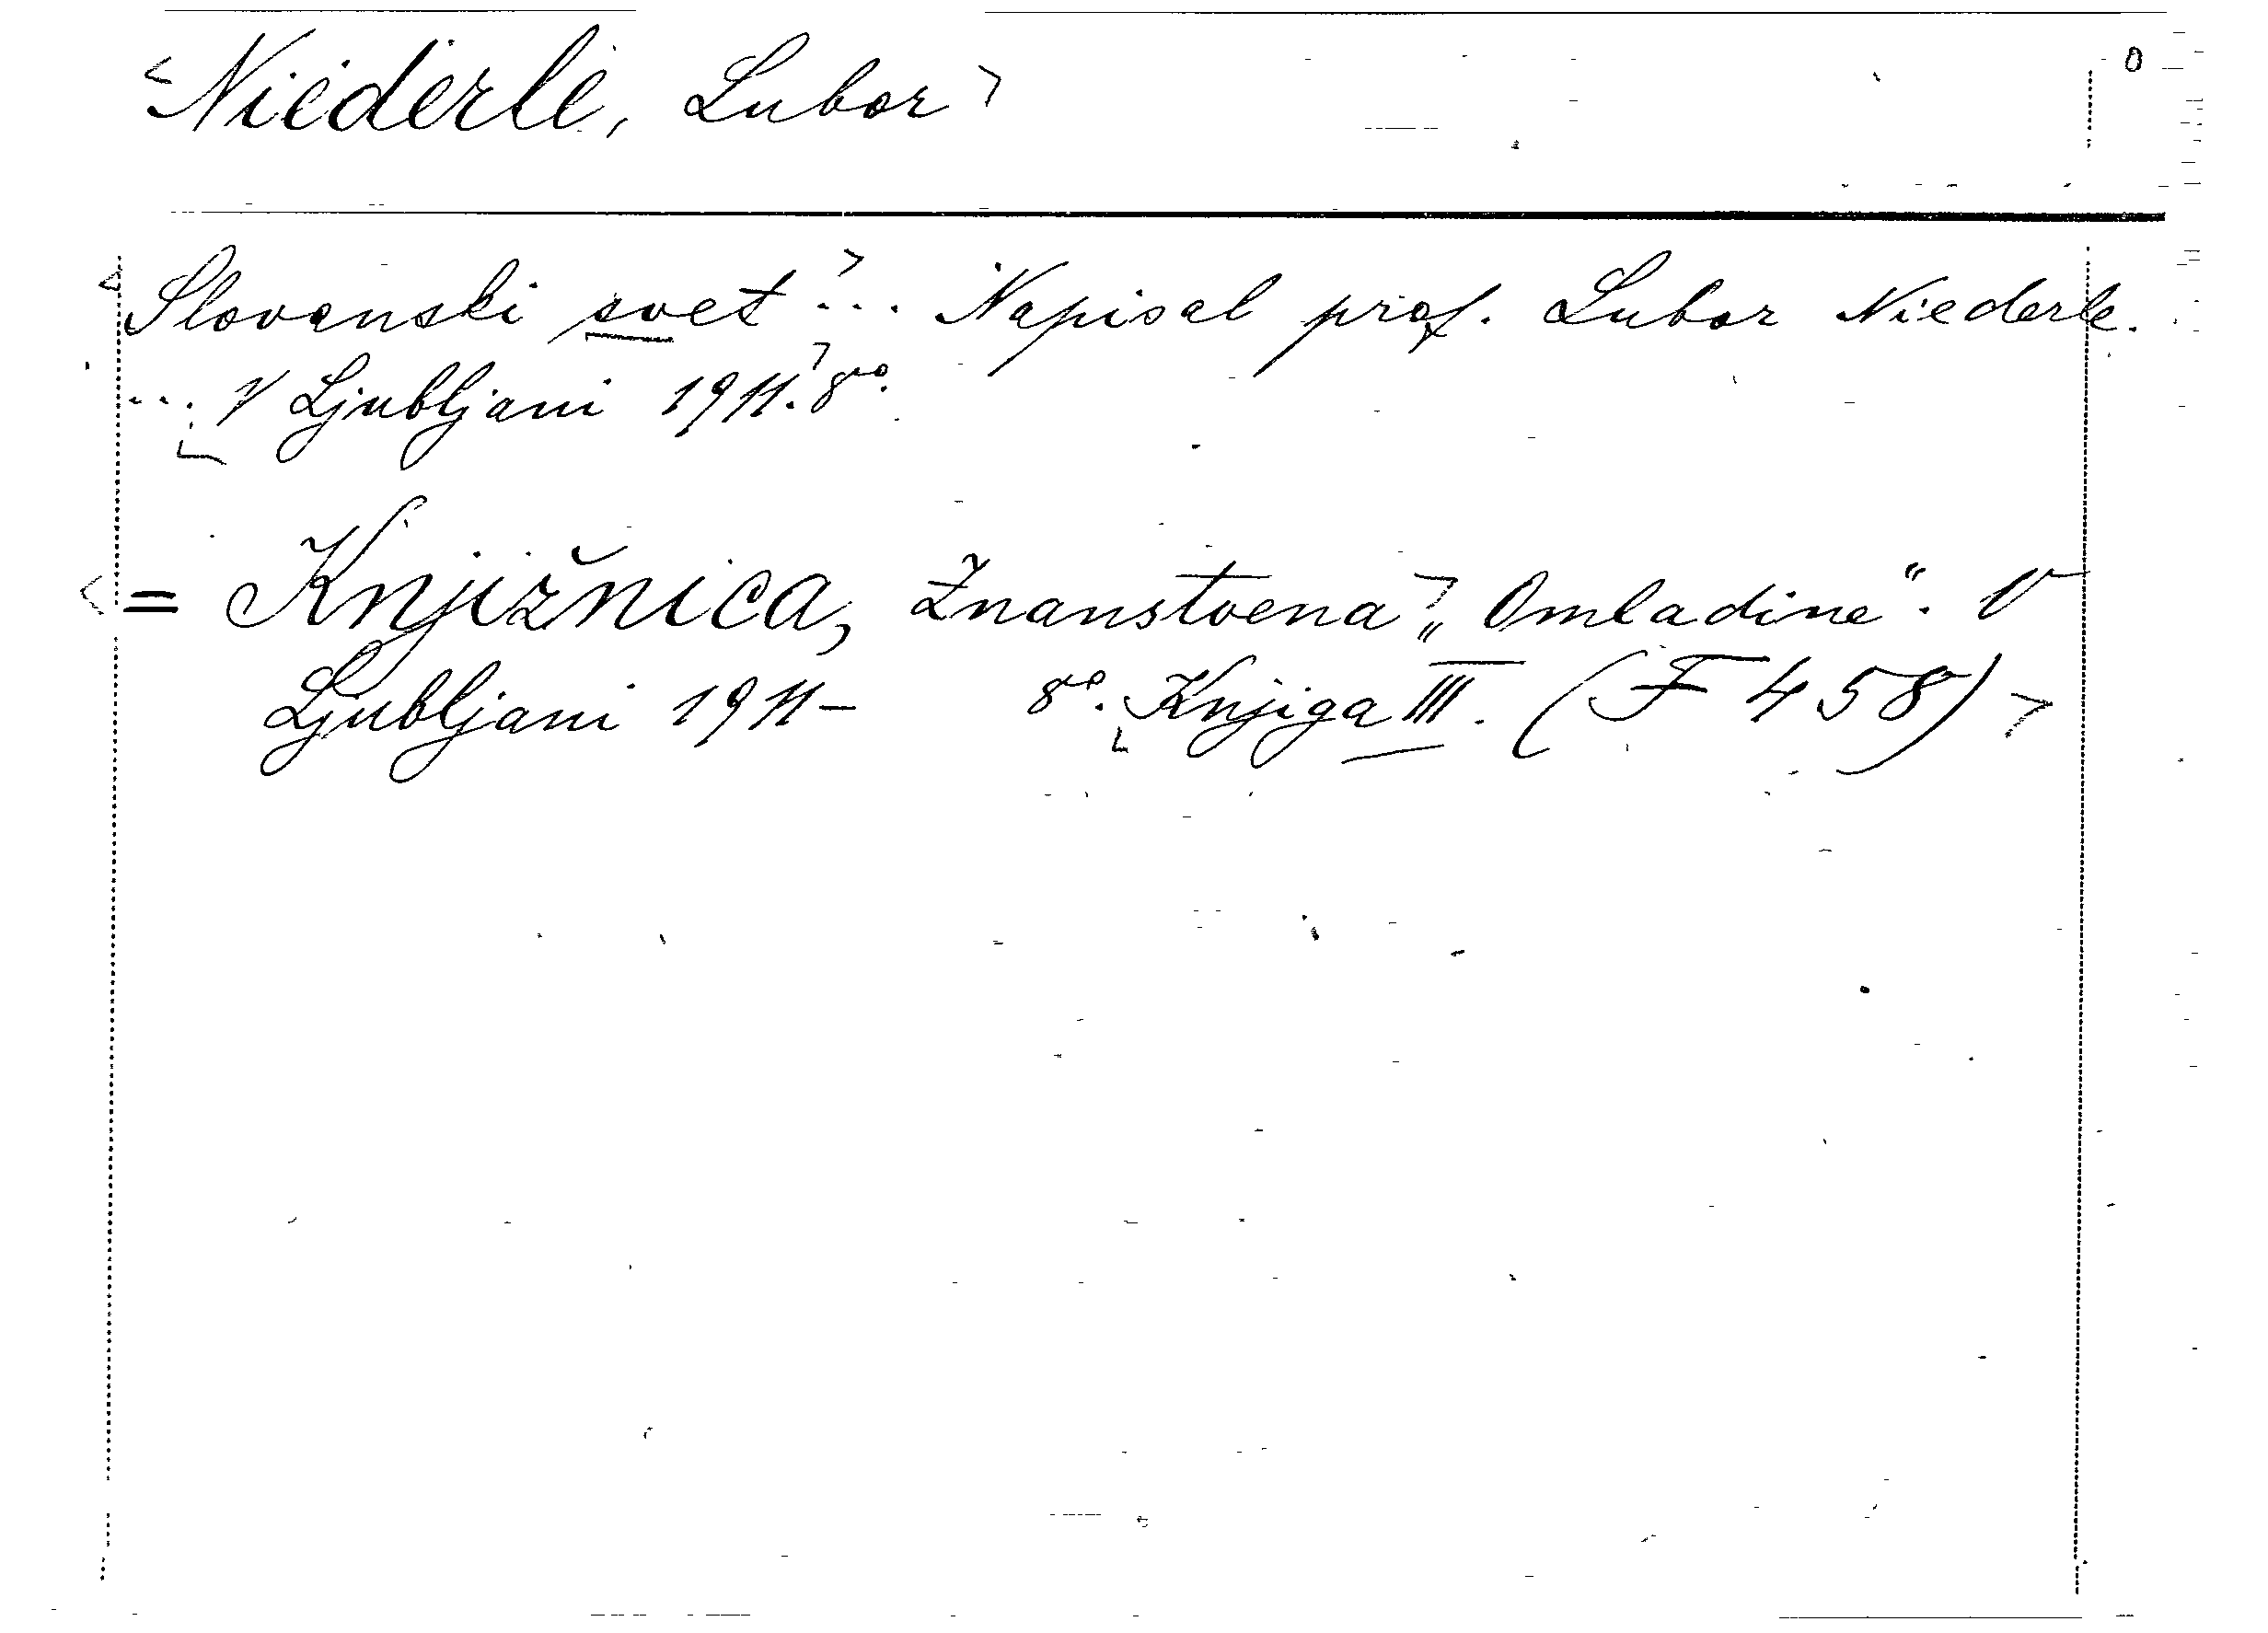 <Niederle, Lubor>
0
<Slovanski svet> ... Napisal prof. Lubor Niederle.
... <V Ljubljani 1911.> 8vo.
<= Knjižnica, Znanstvena> „Omladine“. V
Ljubljani 1911- 8o. <Knjiga III. (F 458)>